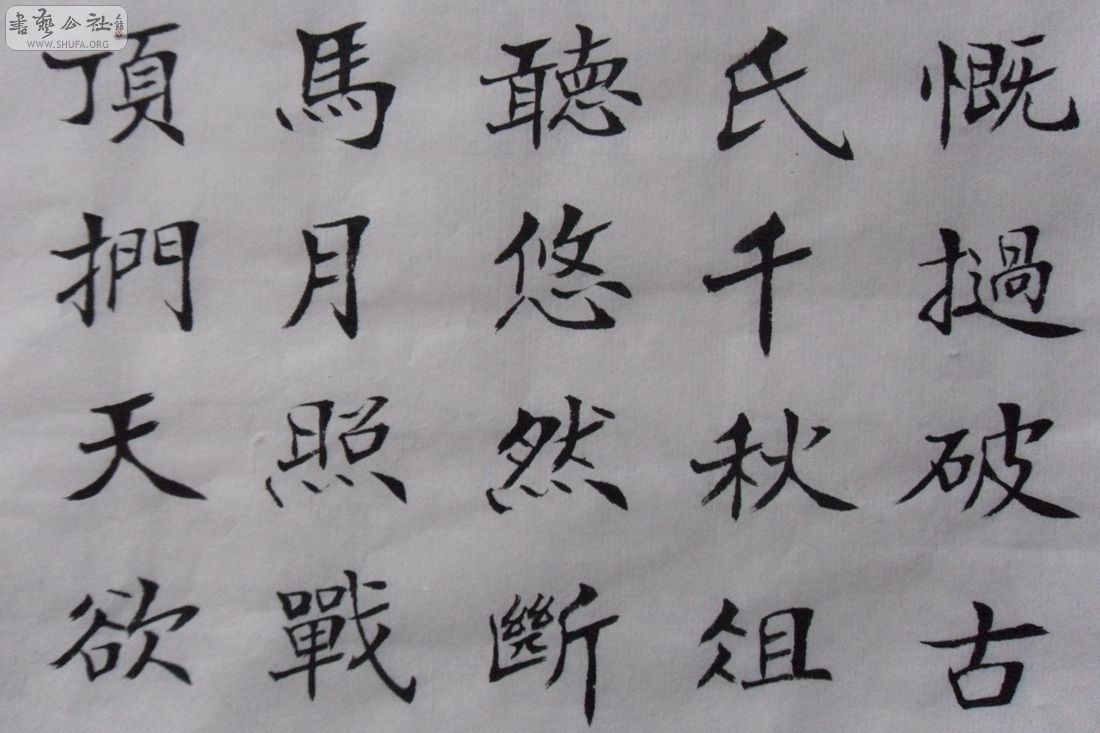 慨撾破古
氏千秋俎
聽悠然斷
馬月照戰
頂捫天欲
書藝公社
WWW.SHUFA.ORG